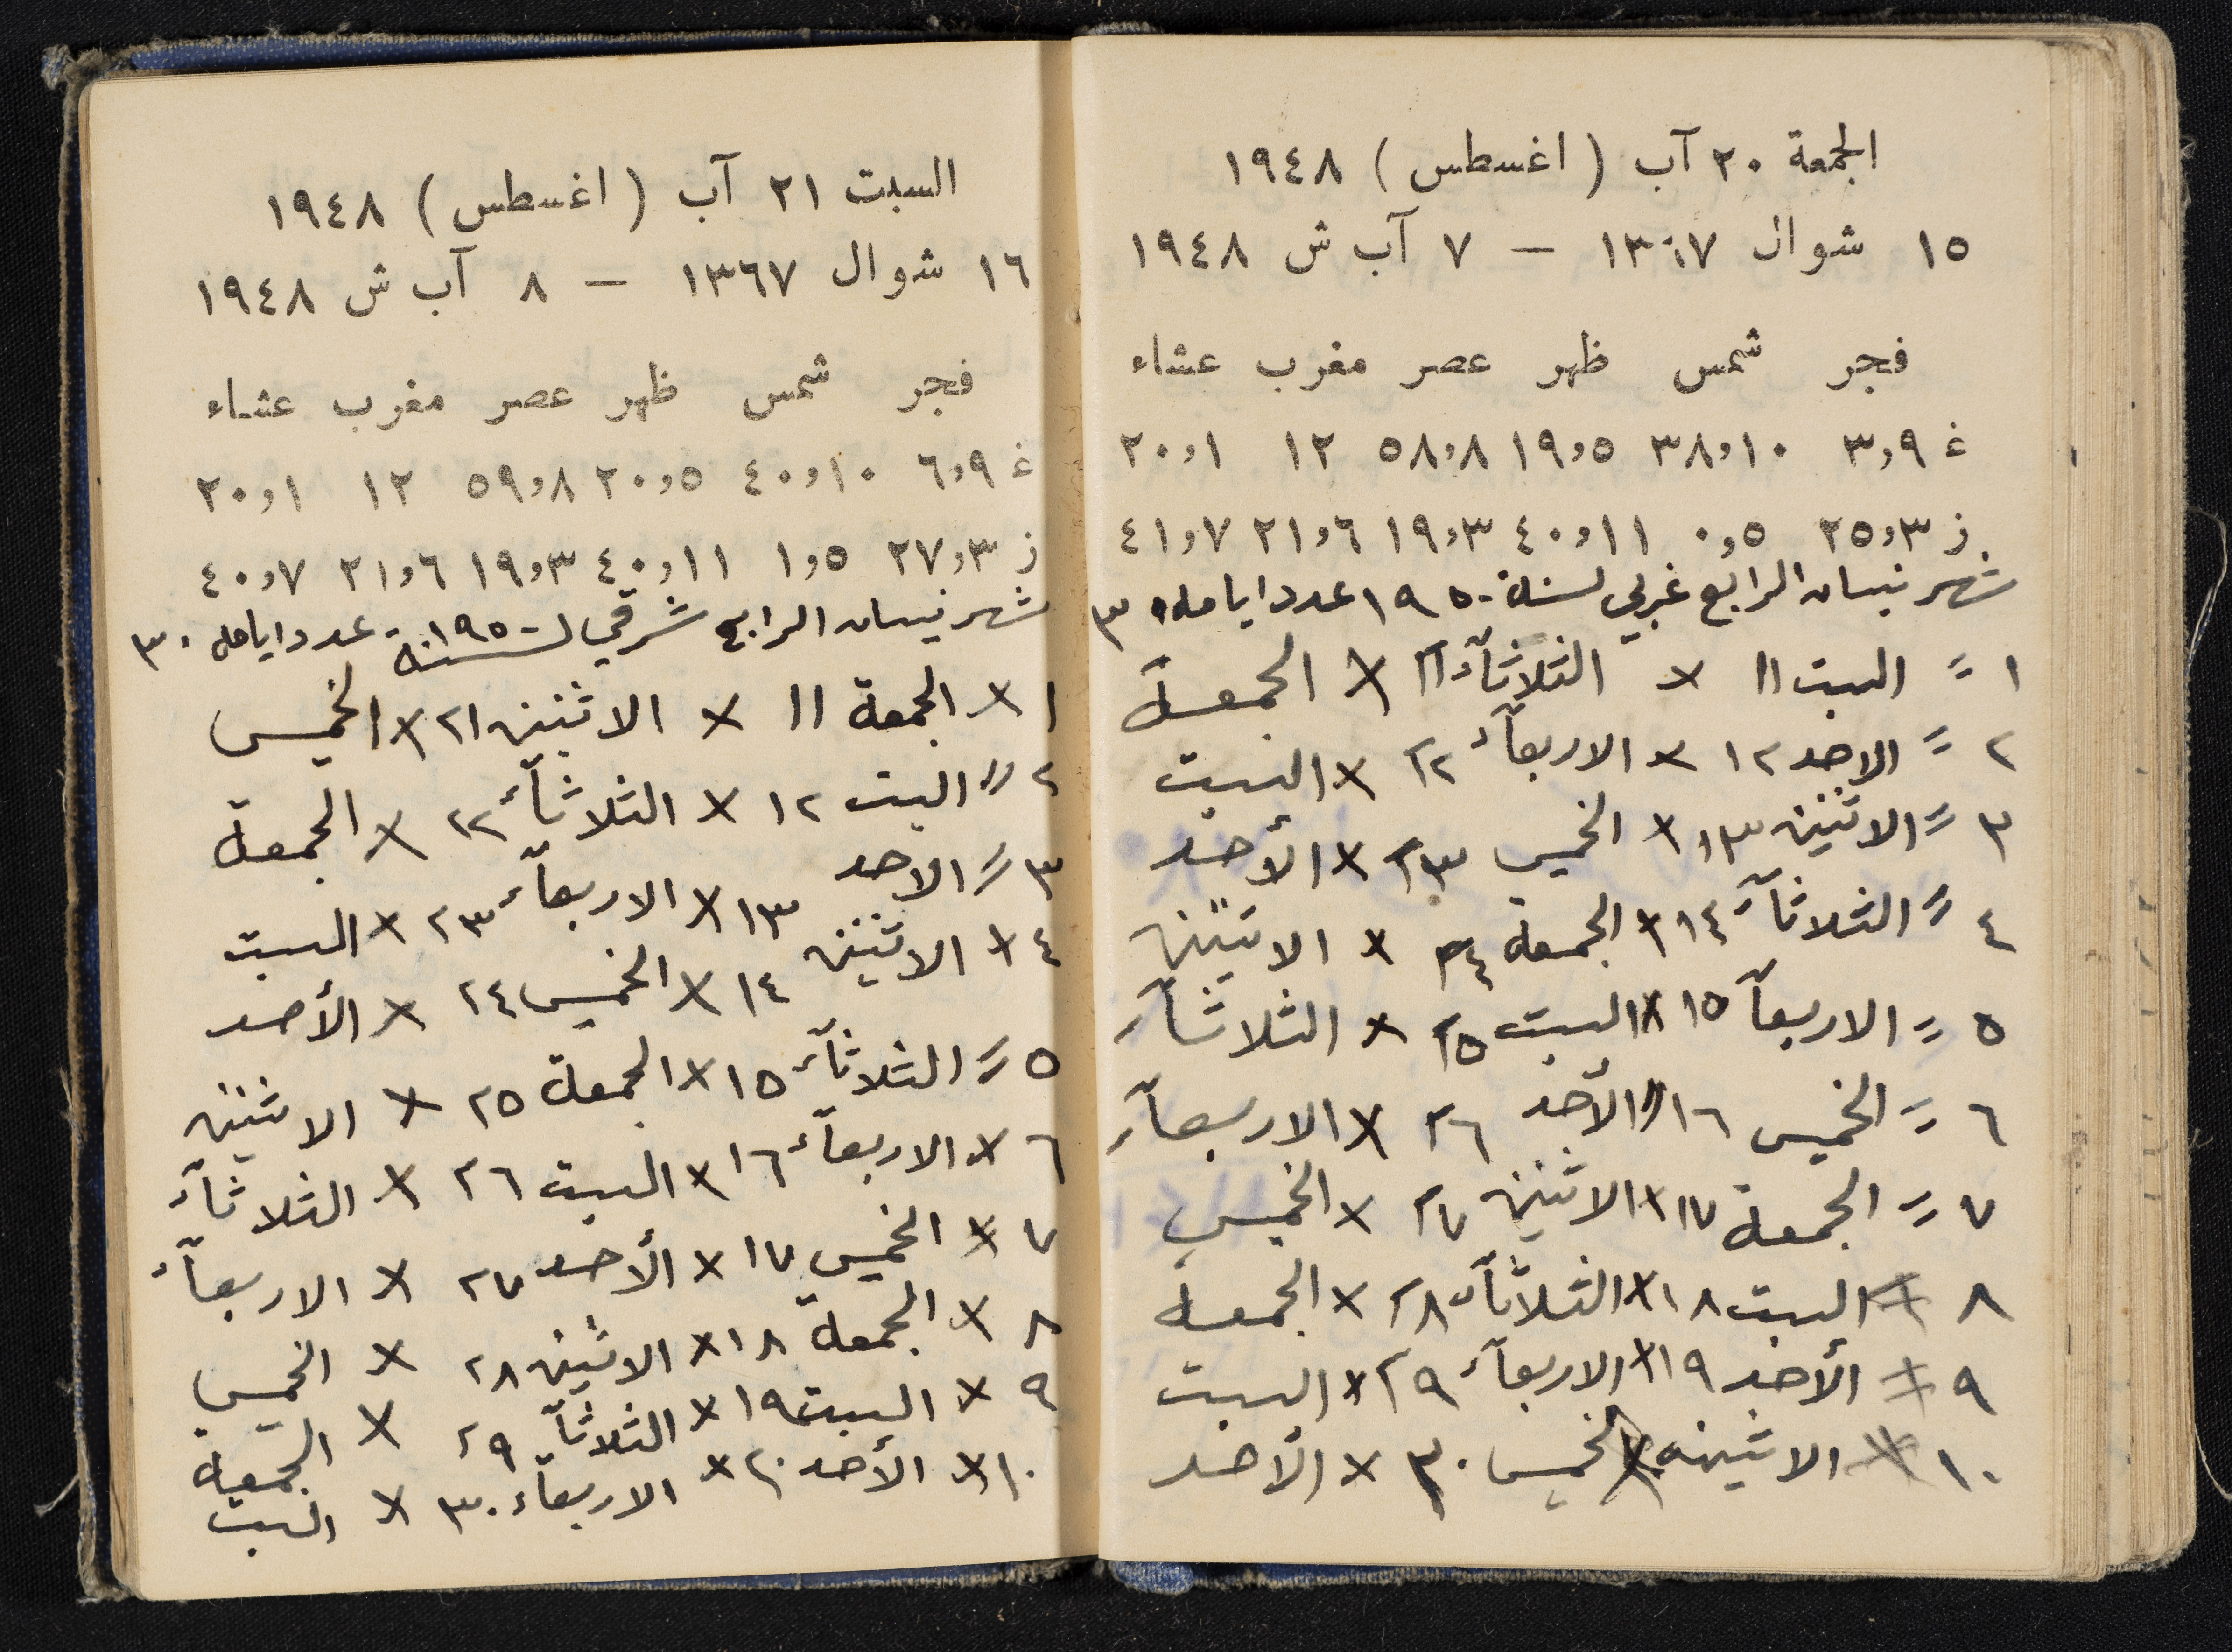 الجمعة ٢٠ آب ( اغسطس ) ١٩٤٨
١٥ شوال ١٣٦٧ – ٧ آب ش ١٩٤٨
فجر شمس ظهر عصر مغرب عشاء
غ ٣,٩ ٣٨,١٠ ١٩,٥ ٥٨,٨ ١٢ ٢٠,١
ز ٢٥,٣ ٠,٥ ٤٠,١١ ١٩,٣ ٢١,٦ ٤١,٧
شهر نيسان الرابع غربي لسنة ١٩٥٠ عدد ايامه ٣٠
١ = السبت ١١ × الثلاثآء ٢١ × الجمعة
٢ = الاحد ١٢ × الاربعآء ٢٢ × السبت
٣ = الاثنين ١٣ × الخميس ٢٣ × الأحد
٤ = الثلاثآء ١٤ × الجمعة ٢٤ × الاثنين
٥ = الاربعآ ١٥ × السبت ٢٥ × الثلاثآء
٦ = الخميس ١٦ = الأحد ٢٦ × الاربعآء
٧ = الجمعة ١٧ × الاثنين ٢٧ × الخميس
٨ = السبت ١٨ × الثلاثآء ٢٨ × الجمعة
٩ = الأحد ١٩ × الاربعآء ٢٩ × السبت
١٠ × الاثنين × الخميس ٣٠ × الأحد
السبت ٢١ آب ( اغسطس ) ١٩٤٨
١٦ شوال ١٣٦٧ – ٨ آب ش ١٩٤٨
فجر شمس ظهر عصر مغرب عشاء
غ ٦,٩ ٤٠,١٠ ٢٠,٥ ٥٩,٨ ١٢ ٢٠,١
ز ٢٧,٣ ١,٥ ٤٠,١١ ١٩,٣ ٢١,٦ ٤٠,٧
شهر نيسان الرابع شرقي لسنة ١٩٥٠ عدد ايامه ٣٠
١ × الجمعة ١١ × الاثنين ٢١ × الخميس
٢ = السبت ١٢ × الثلاثآء ٢٢ × الجمعة
٣ = الاحد ١٣ × الاربعآء ٢٣ × السبت
٤ × الاثنين ١٤ × الخميس ٢٤ × الأحد
٥ = الثلاثآء ١٥ × الجمعة ٢٥ × الاثنين
٦ × الاربعآء ١٦ × السبت ٢٦ × الثلاثآء
٧ × الخميس ١٧ × الأحد ٢٧ × الاربعآء
٨ × الجمعة ١٨ × الاثنين ٢٨ × الخميس
٩ × السبت ١٩ × الثلاثآ ٢٩ × الجمعة
١٠ × الأحد ٢٠ × الاربعآء ٣٠ × السبت